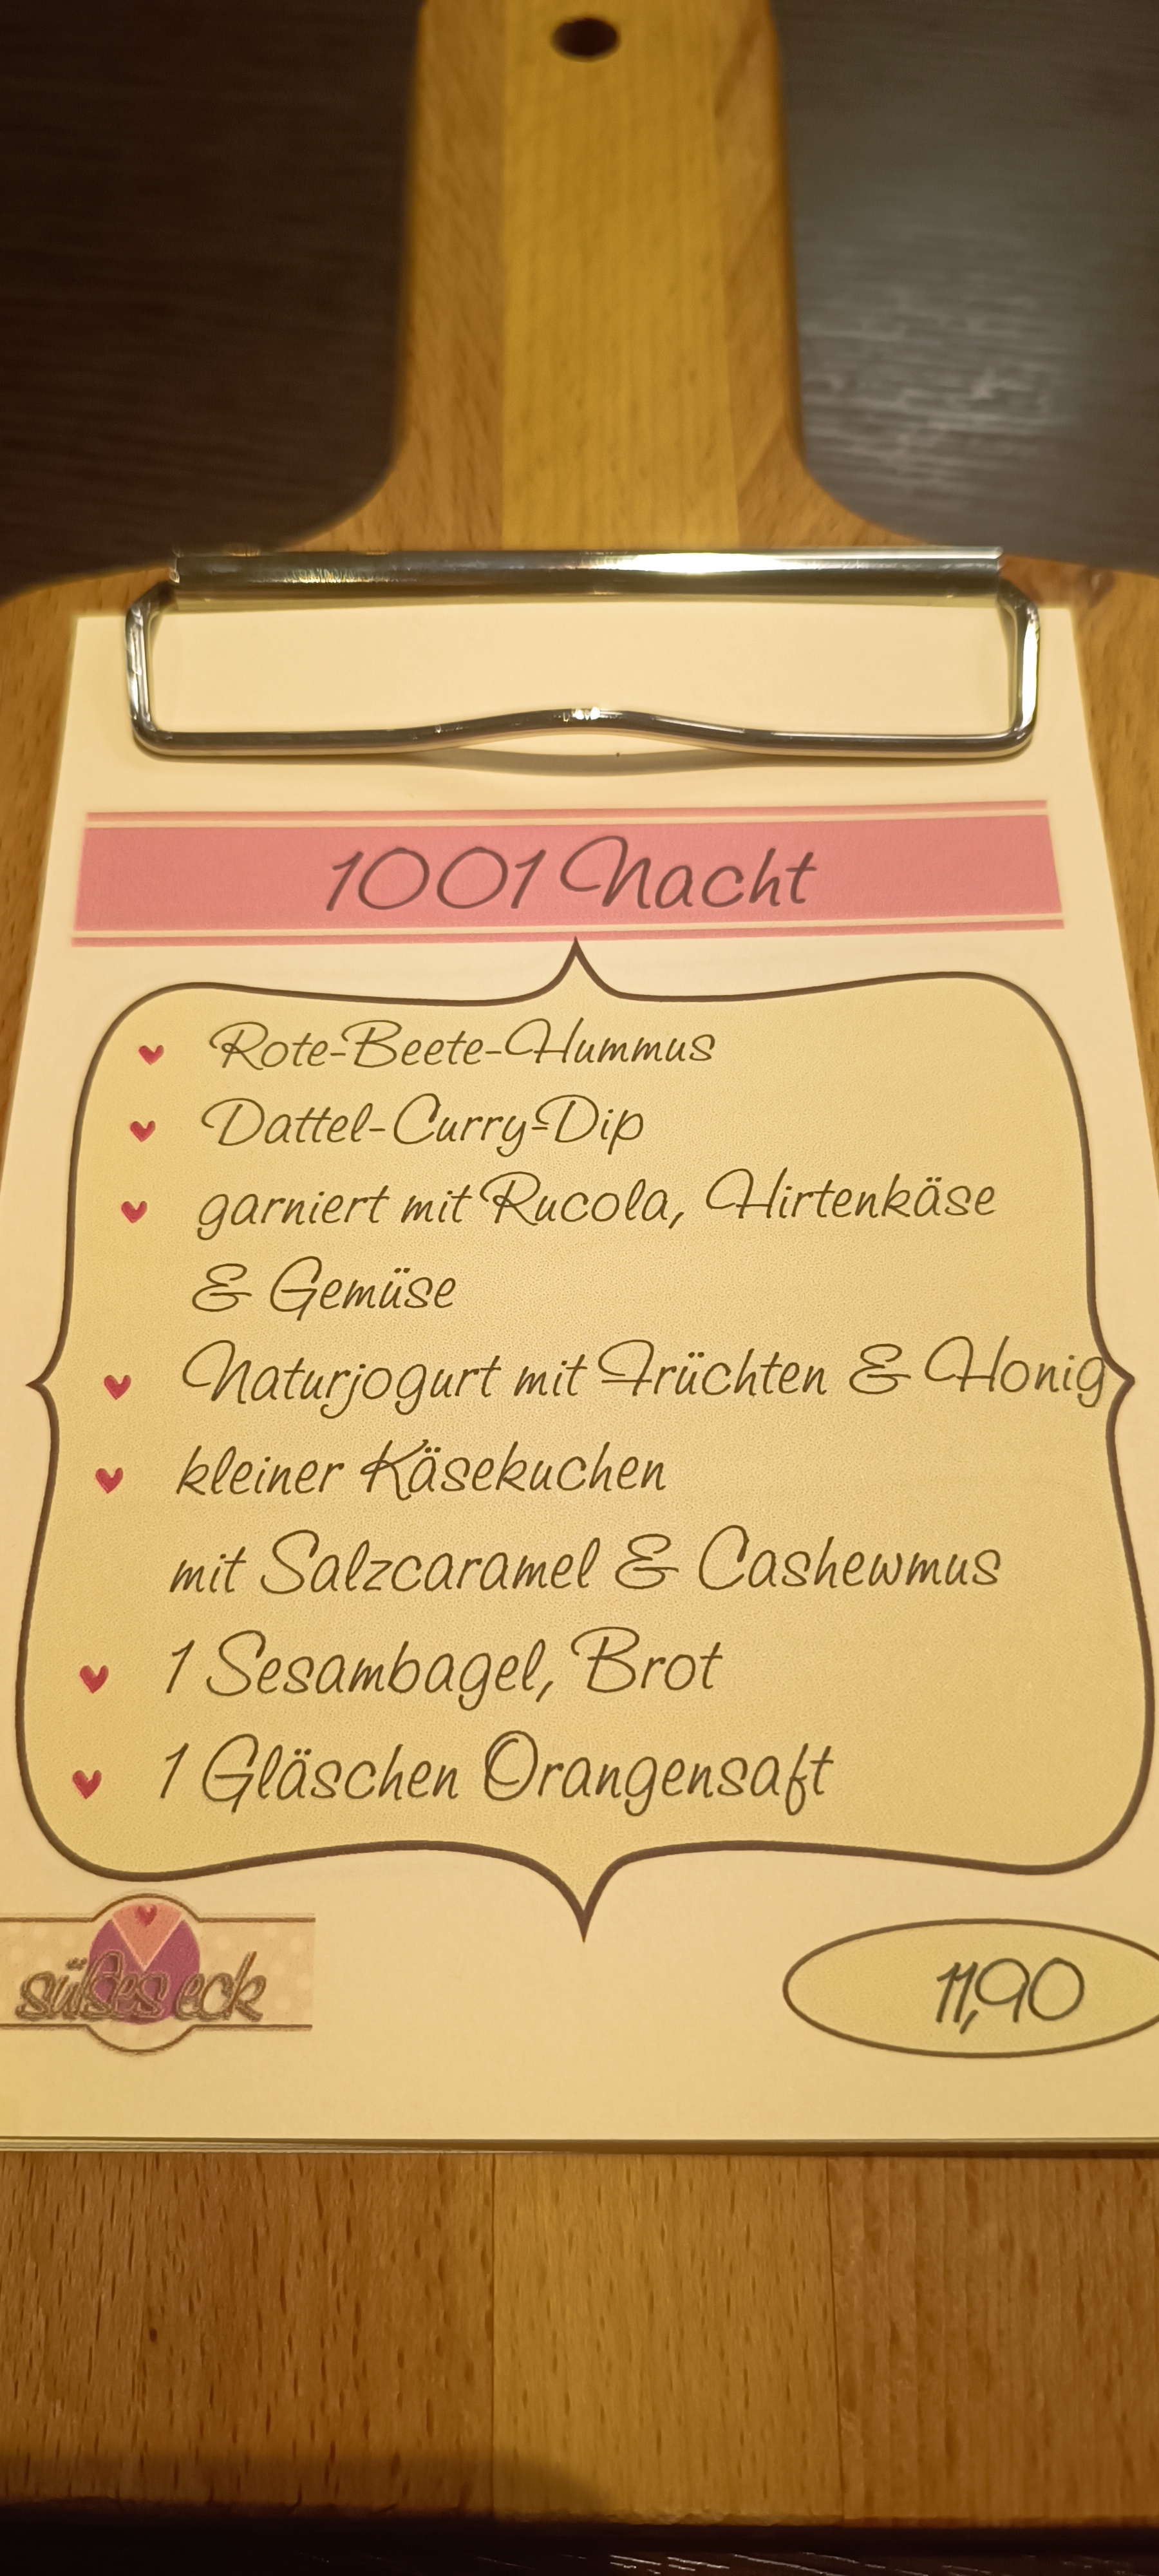 1001 Nacht
Rote-Beete-Hummus
Dattel-Curry-Dip
garniert mit Rucola, Hirtenkäse
& Gemüse
Naturjogurt mit Früchten & Honig
kleiner Käsekuchen
mit Salzcaramel & Cashewmus
1 Sesambagel, Brot
1 Gläschen Orangensaft
süßes eck
11,90